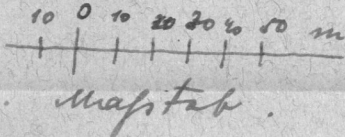 10 0 10 20 30 40 50 m
Maßstab.